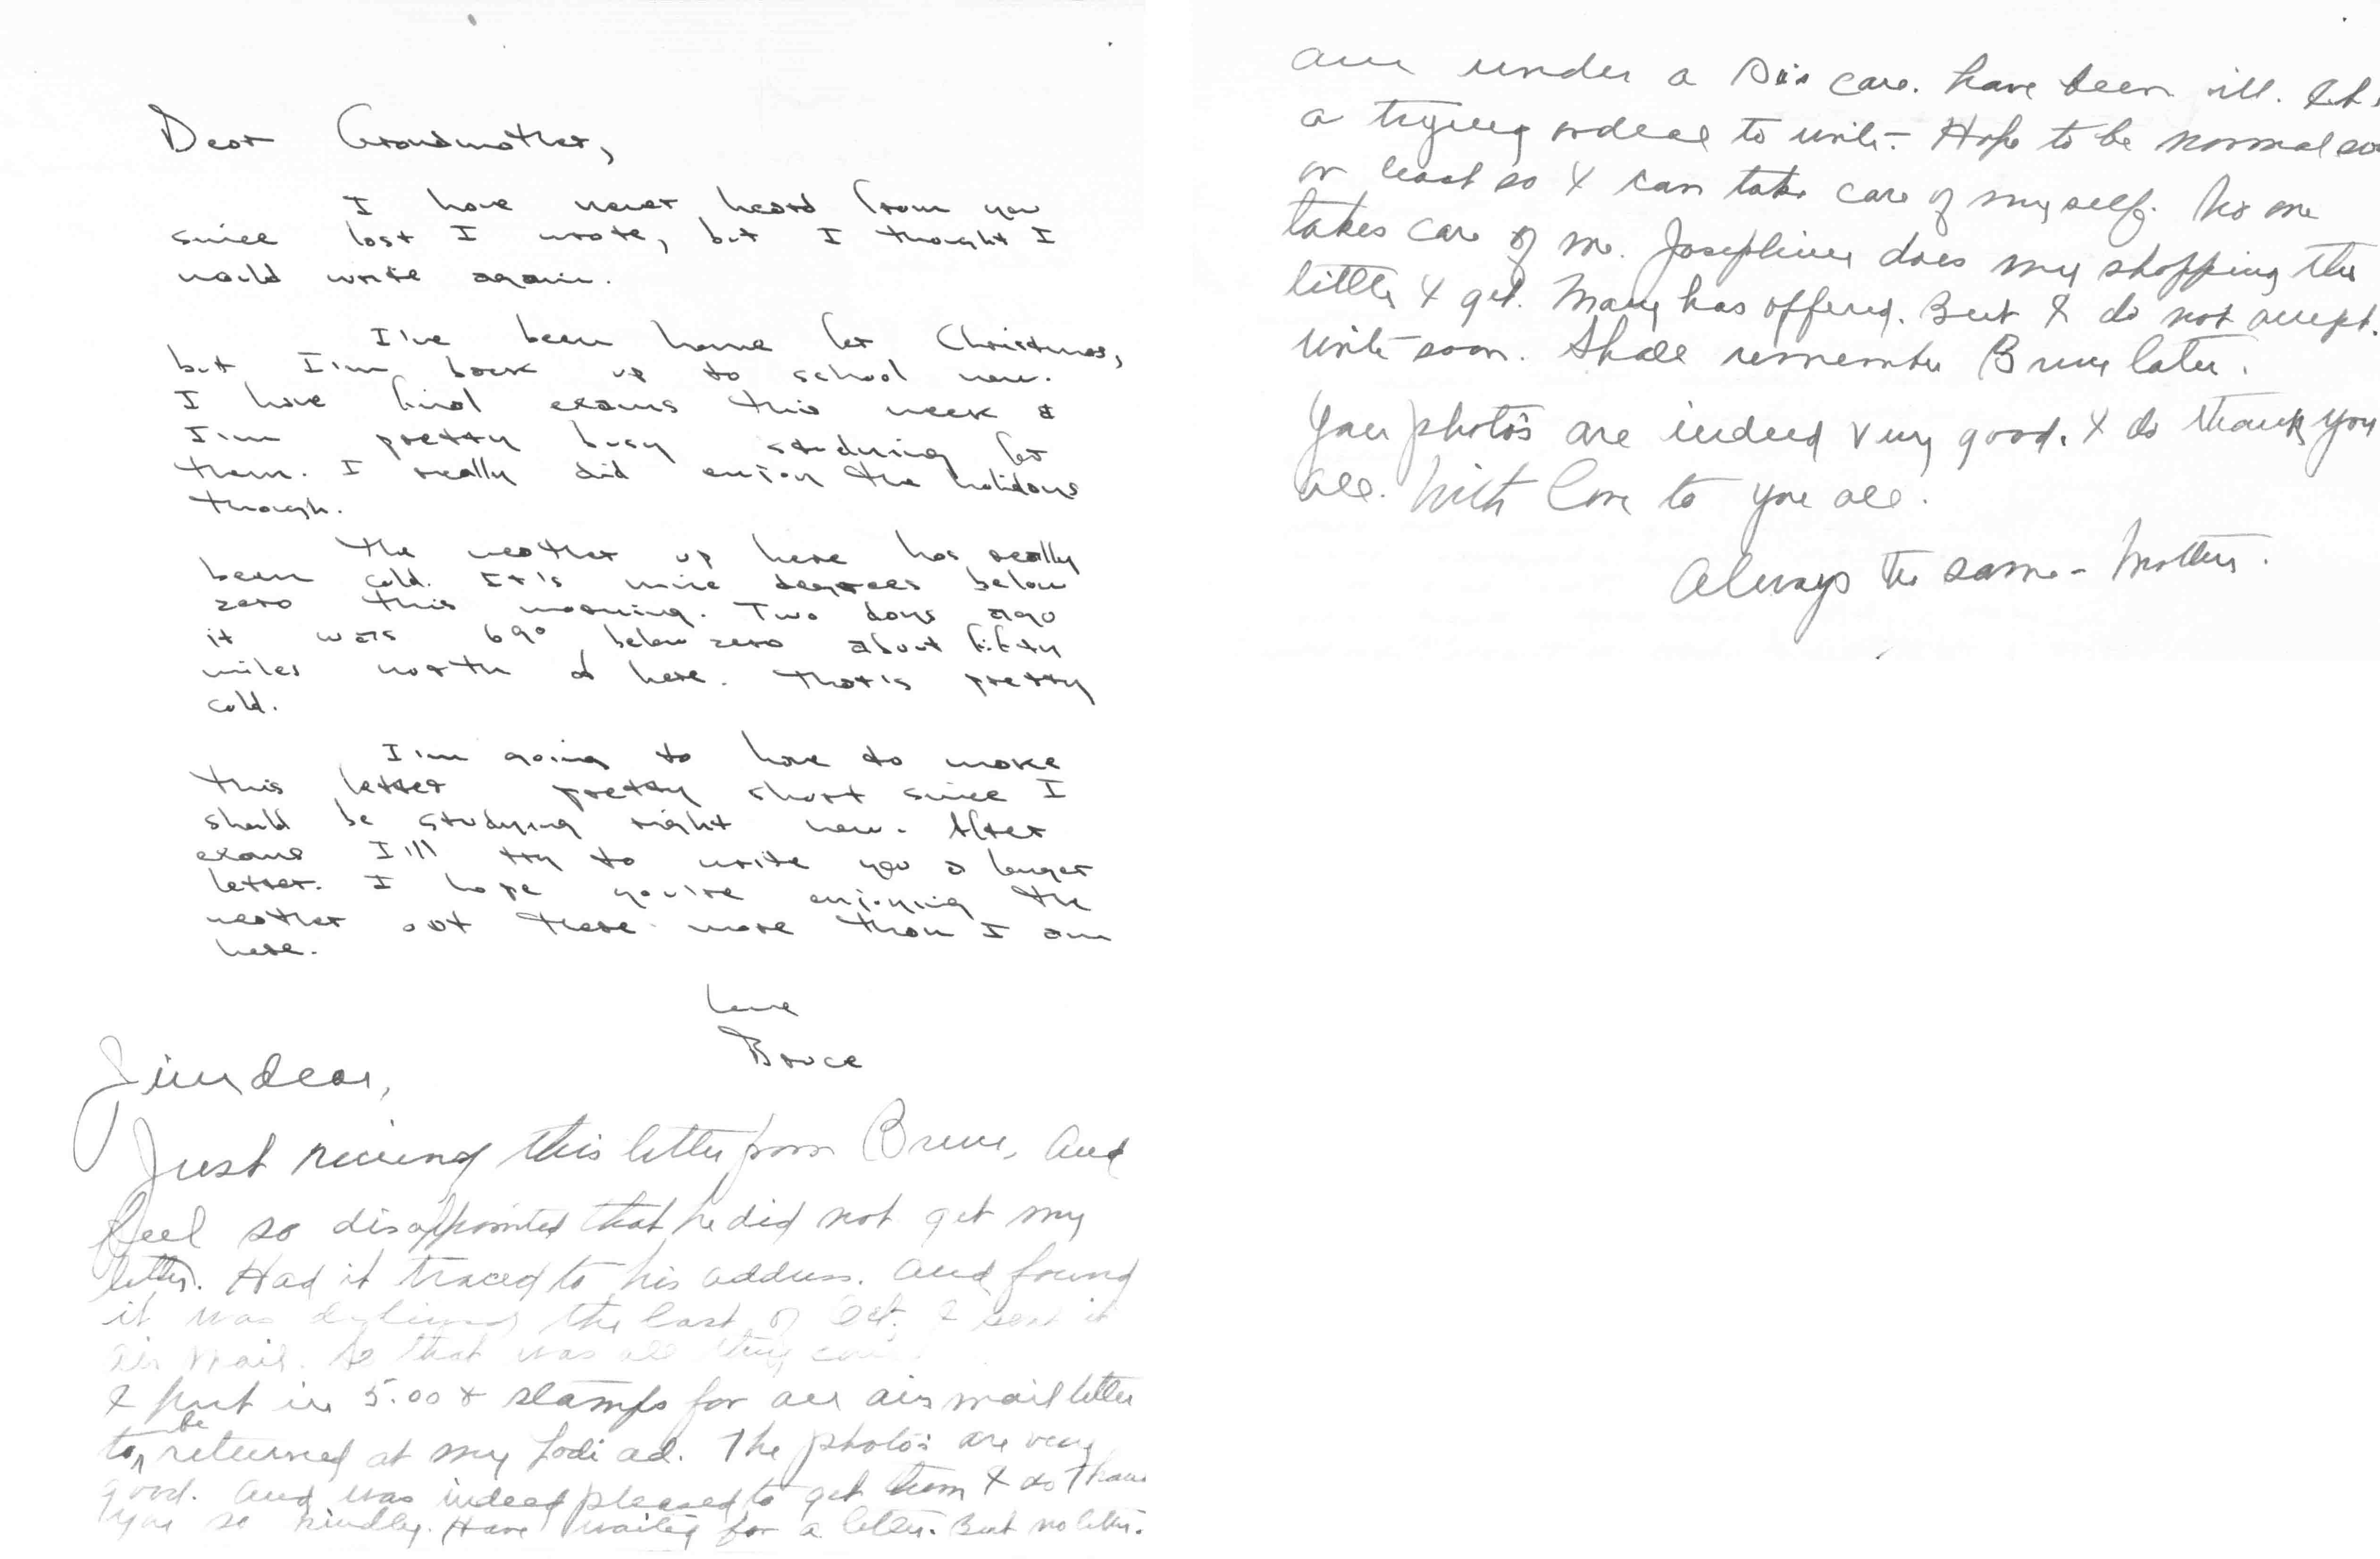 Dear Grandmother,
I have never heard from you
since last I wrote, but I thought I
would write again.
I've been home for Christmas,
but I'm back up to school now.
I have final exams this week &
I'm pretty busy studying for
them. I really did enjoy the holidays
though.
The weather up here has really
been cold. It's nine degrees below
zero this morning. Two days ago
it was 69° below zero about fifty
miles north of here. That's pretty
cold.
I'm going to have to make
this letter pretty short since I
should be studying right now. After
exams I'll try to write you a longer
letter. I hope you're enjoying the
weather out there more than I am
here.
Love
Bruce
Jim dear,
Just receiving this letter from Bruce, and
feel so disappointed that he did not get my
letter. Had it traced to his address. and found
it was the last of Oct. I sent it
air mail. So that was all they
I put in 5.00 & stamps for an air mail letter
to be returned at my Lodi ad. The photo's are very
good. and was indeed pleased to get them & do thank
you so kindly. Have waited for a letter. But no letter.
am under a Dr's care. have been ill.
a trying ordeal to write. Hope to be normal
or least so I can take care of myself. No one
takes care of me. Josephine does my shopping the
little I get. Mary has offered. But I do not accept.
write soon. Shall remember Bruce later.
Your photo's are indeed very good. I do thank you
all. With love to you all.
Always the same - Mother.